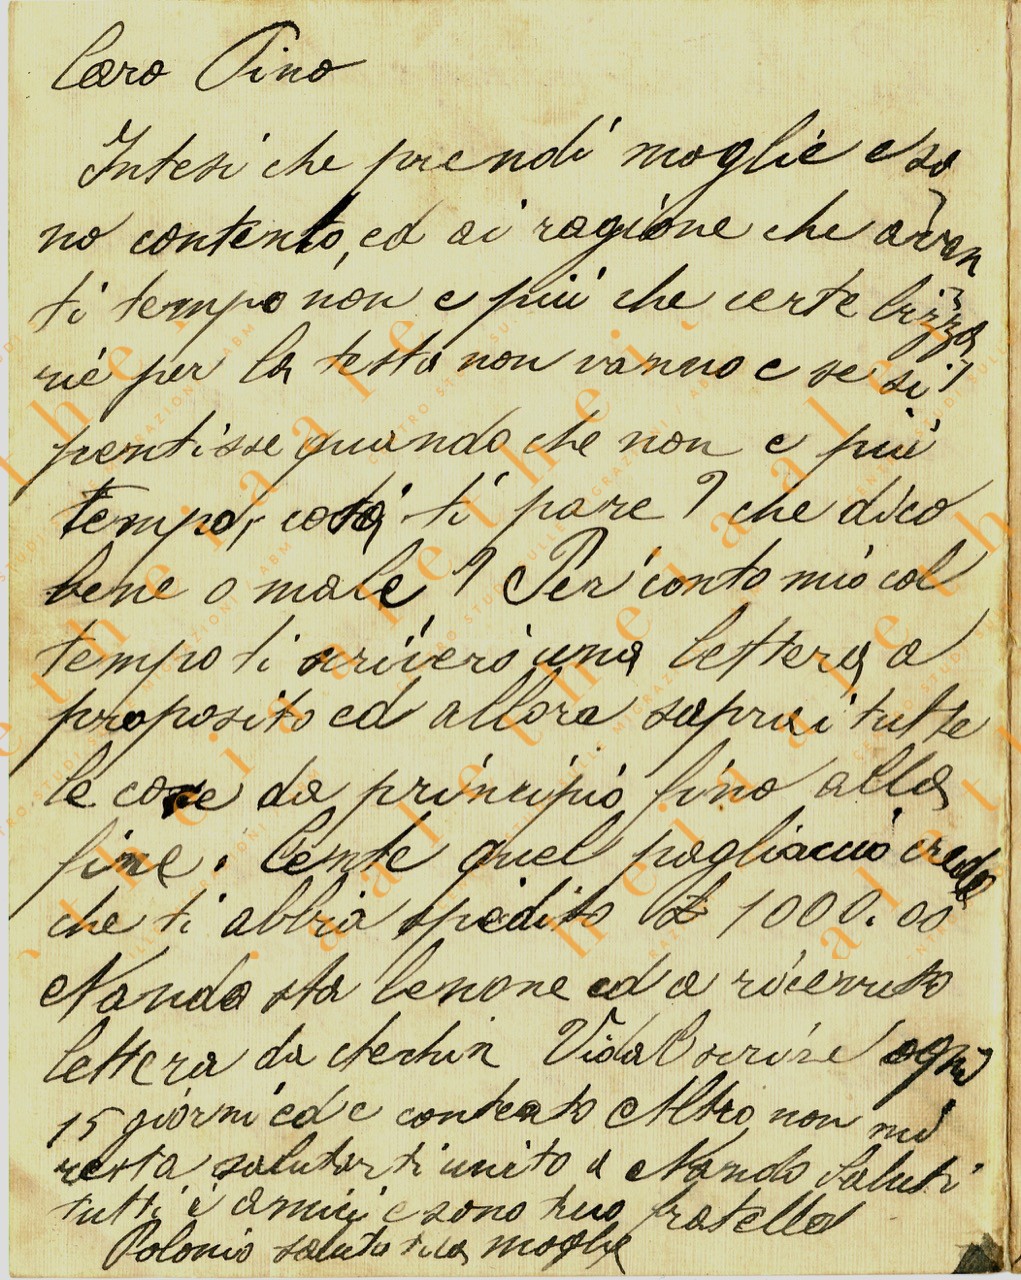 Caro Pino
Intesi che prendi moglie e so
no contento, ed ai ragione che avan
ti tempo non e più che certe bizza
rie per la testa non vanno e se si
pentisse quando che non e più
tempo, cosa ti pare? che dico
bene o male? Per conto mio col
tempo ti scriverò una lettera a
proposito ed allora saprai tutte
le cose da principio fino alla
fine. Cente quel pagliaccio crede
che ti abbia spedito £ 1000.00
Nando sta benone ed a ricevuto
lettera da Vidal scrive ogni
15 giorni ed e contento Altro non mi
resta salutarti unito a Nando Saluti
tutti i amici e sono tuo fratello
Polonio saluta tua moglie